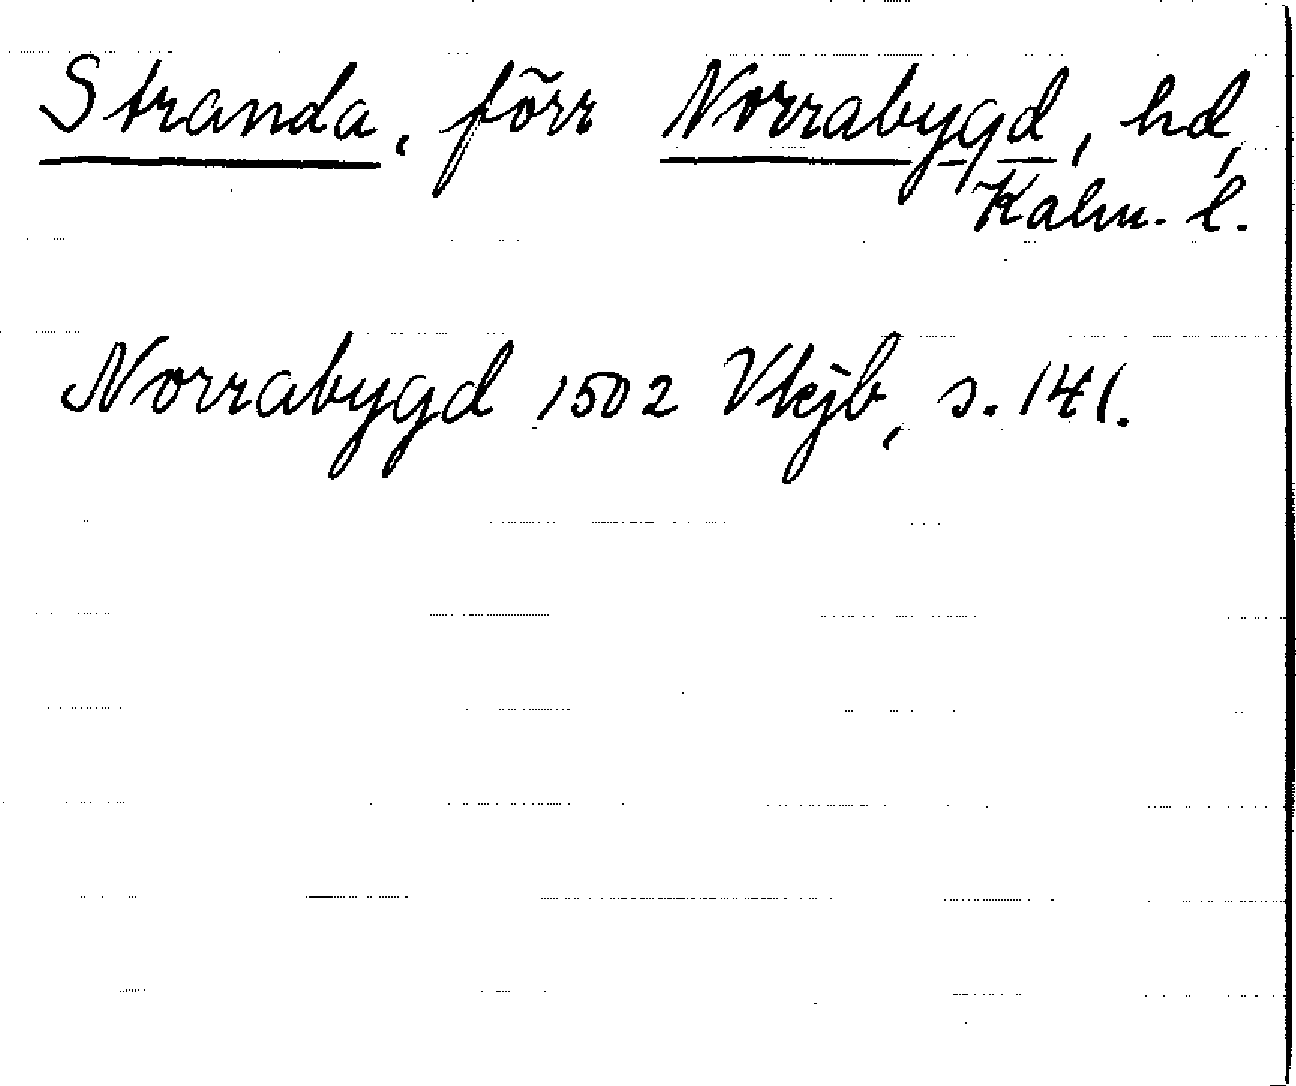 Stranda, förr Norrabygd, hd,
Kalm. l.
Norrabygd 1502 Vkjb, s. 141.